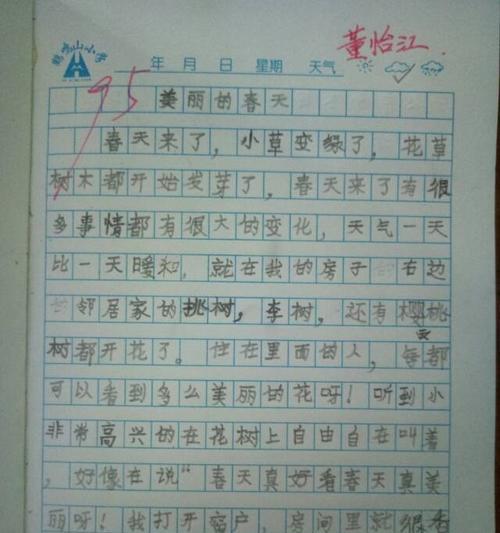 鹤鸣山小学
董怡江.
年 月 日 星期 天气
95
美丽的春天
春天来了，小草变绿了，花草
树木都开始发芽了，春天来了有很
多事情都有很大的变化，天气一天
比一天暖和，就在我的房子 右边
邻居家的挑树，李树，还有樱桃
树都开花了。住在里面的人，每天都
可以看到多么美丽的花呀！听到小
非常高兴的在花树上自由自在叫着
，好像在说“春天真好看春天真美
丽呀！我打开窗户，房间里就很香